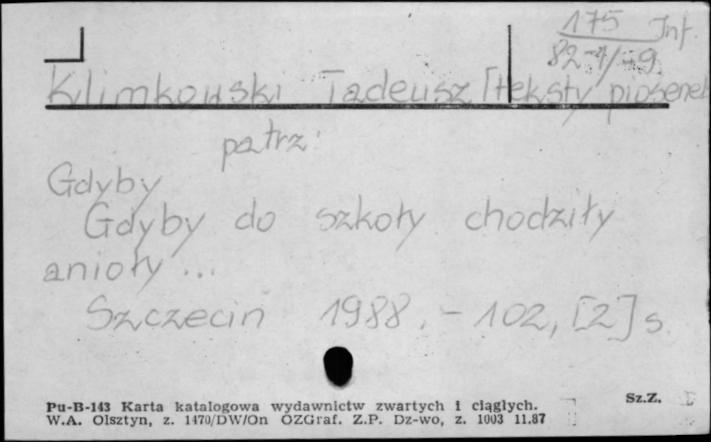 175 Inf.
82-7/-9
Klimkowski Tadeusz [teksty piosenek
patrz:
Gdyby
Gdyby do szkoły chodziły
anioły...
Szczecin 1988. - 102, [2] s.
Pu-B-143 Karta katalogowa wydawnictw zwartych i ciągłych. Sz.Z.
W.A. Olsztyn, z. 1470/DW/On OZGraf. Z.P. Dz-wo, z. 1003 11.87